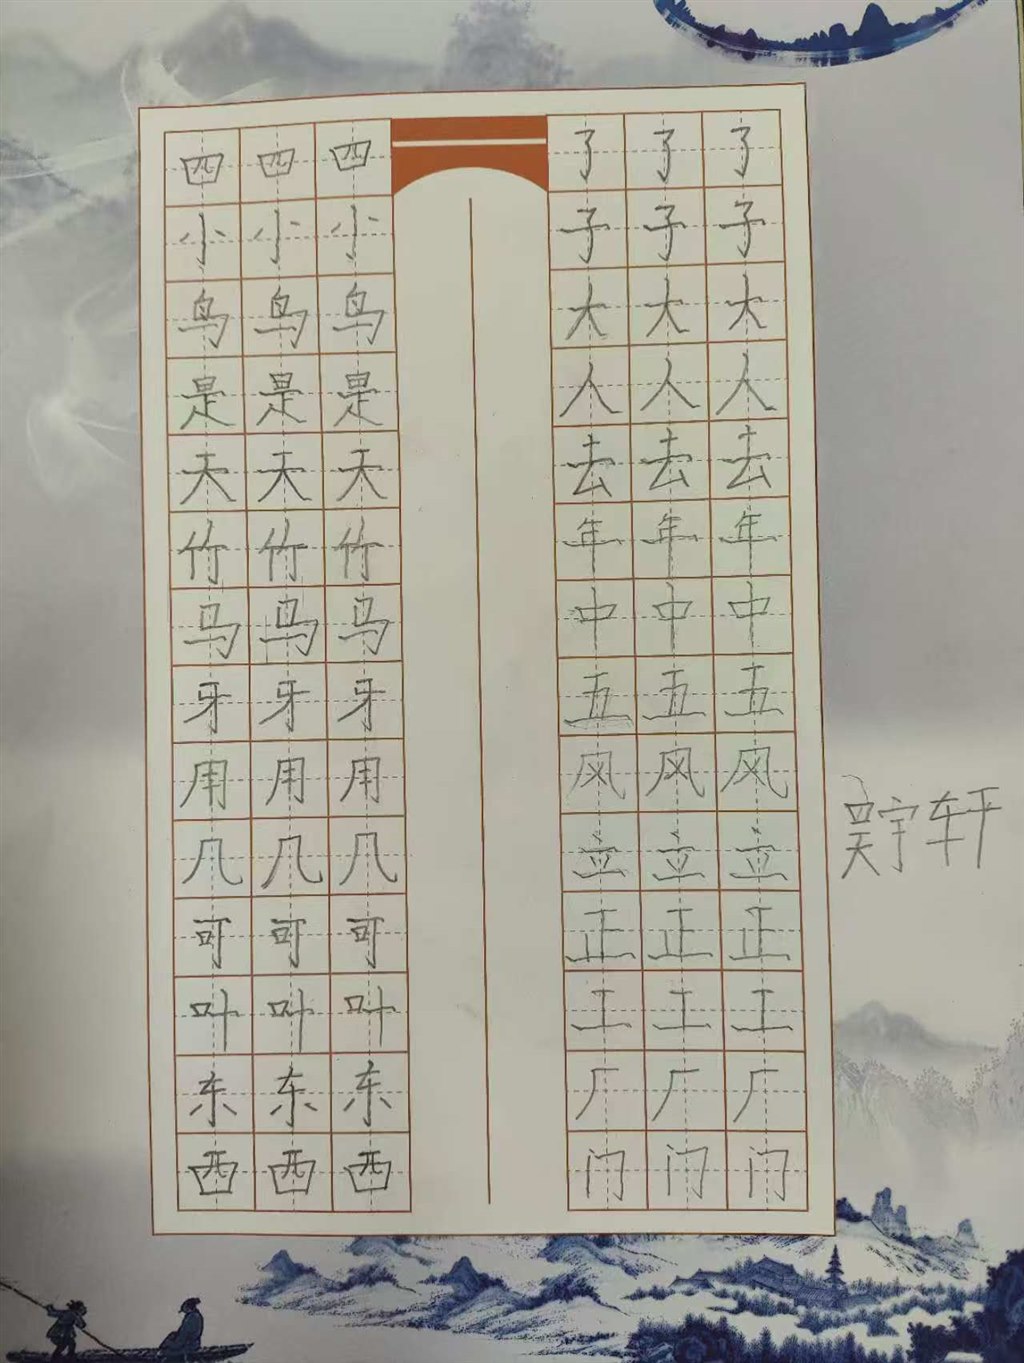 四四四
小小小
鸟鸟鸟
是是是
天天天
竹竹竹
马马马
牙牙牙
用用用
几几几
可可可
叶叶叶
东东东
西西西
了了了
子子子
大大大
人人人
去去去
年年年
中中中
五五五
风风风
立立立
正正正
工工工
厂厂厂
门门门
吴宇轩